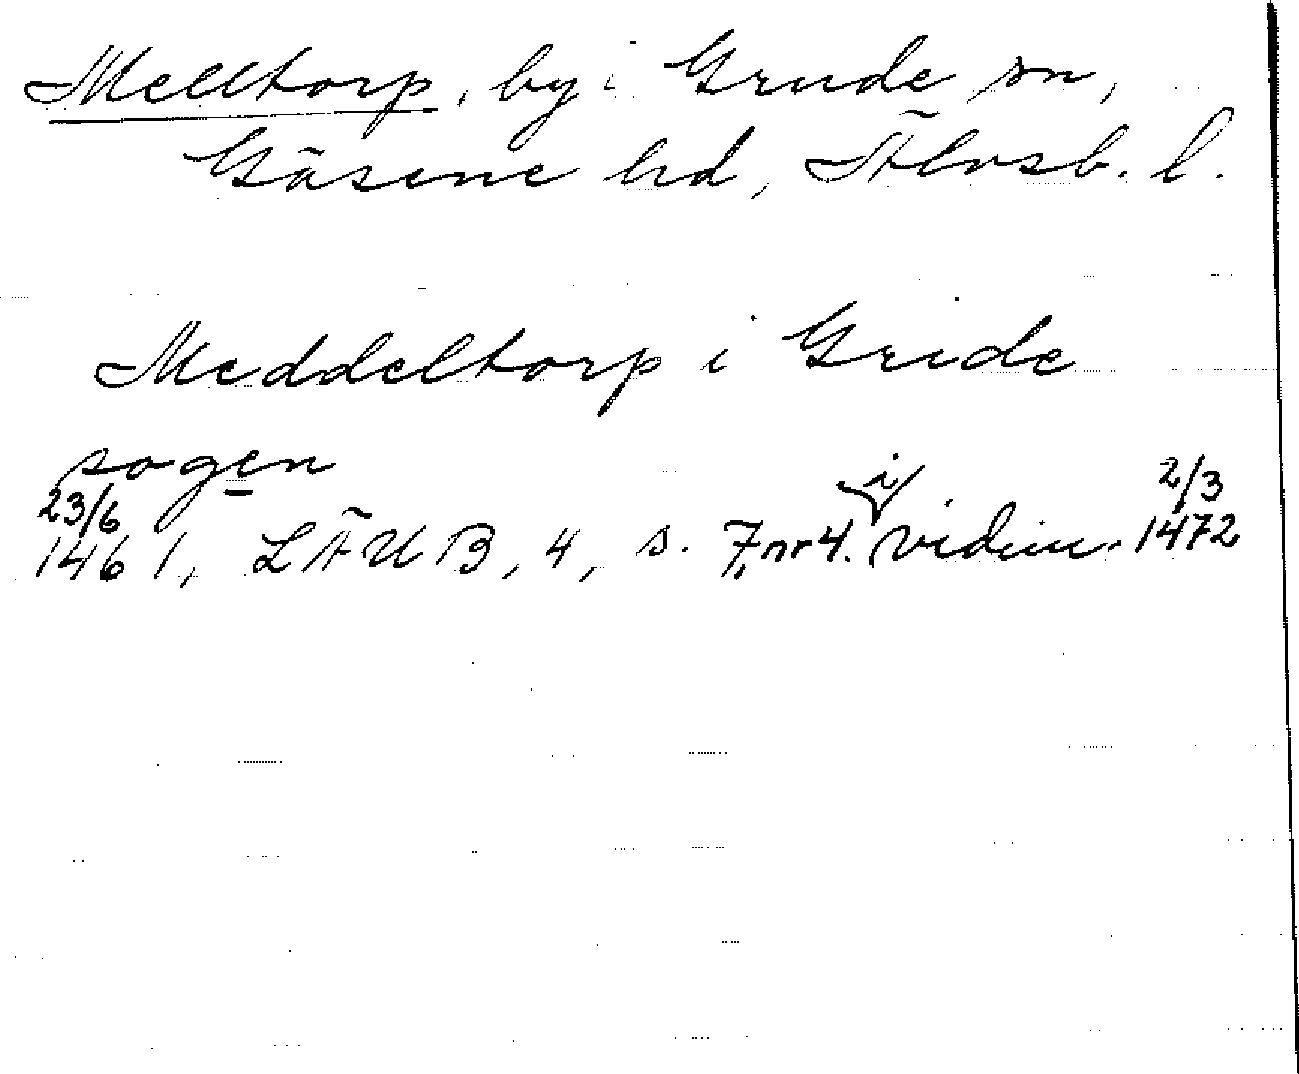 Melltorp, by i Grude sn,
Gäsene hd, Älvsb. l.
Meddeltorp i Gride
sogen
23/6 1461, LÄUB, 4, s. 7, nr 4. i vidim. 2/3 1472